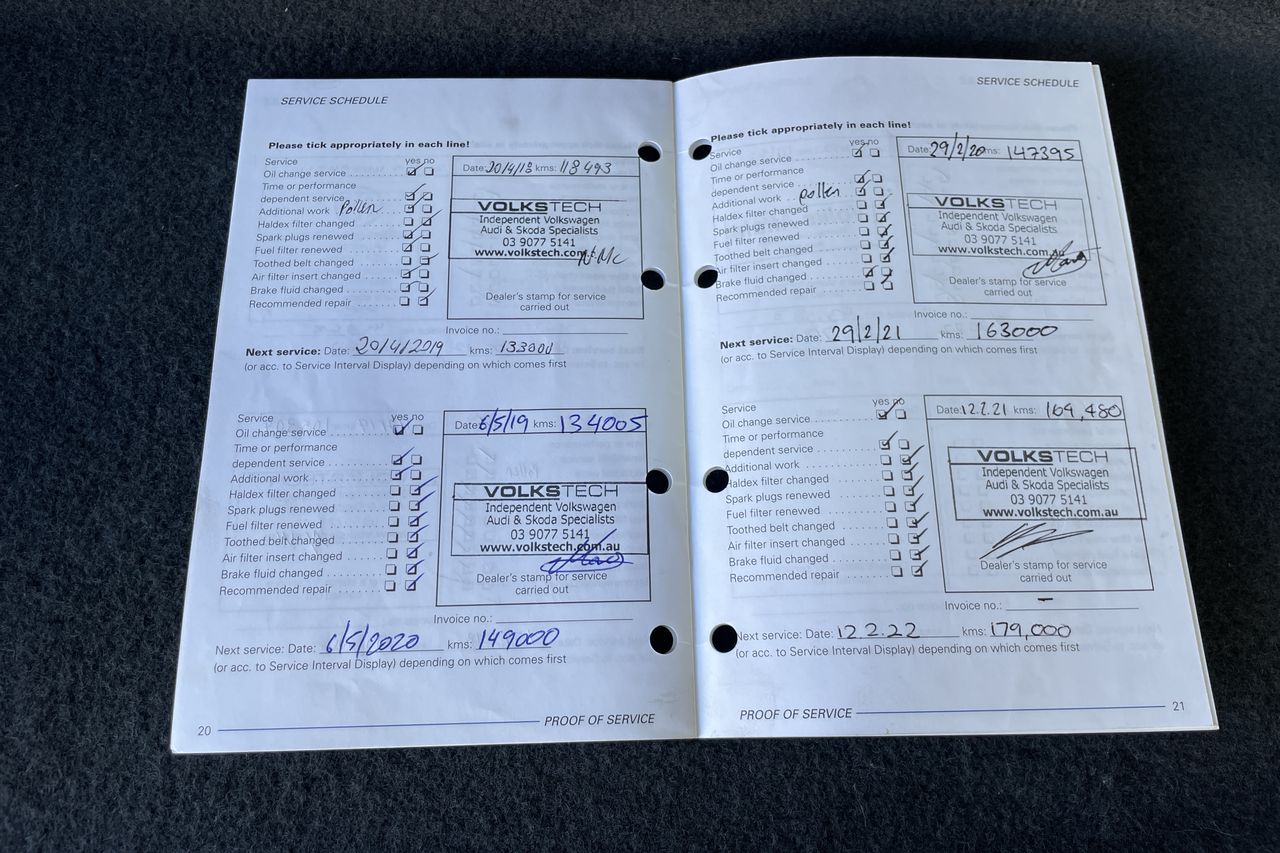 SERVICE SCHEDULE
Please tick appropriately in each line!
Service yes no
Oil change service
Time or performance
dependent service
Additional work Pollen
Haldex filter changed
Spark plugs renewed
Fuel filter renewed
Toothed belt changed
Air filter insert changed
Brake fluid changed
Recommended repair
Date: 20/4/18 kms: 118493
VOLKSTECH
Independent Volkswagen
Audi & Skoda Specialists
03 9077 5141
www.volkstech.com
Dealer's stamp for service
carried out
Invoice no.:
Next service: Date: 20/4/2019 kms: 133000
(or acc. to Service Interval Display) depending on which comes first
Service yes no
Oil change service
Time or performance
dependent service
Additional work
Haldex filter changed
Spark plugs renewed
Fuel filter renewed
Toothed belt changed
Air filter insert changed
Brake fluid changed
Recommended repair
Date: 6/5/19 kms: 134005
VOLKSTECH
Independent Volkswagen
Audi & Skoda Specialists
03 9077 5141
www.volkstech.com.au
Dealer's stamp for service
carried out
Invoice no.:
Next service: Date: 6/5/2020 kms: 149000
(or acc. to Service Interval Display) depending on which comes first
20 PROOF OF SERVICE
SERVICE SCHEDULE
Please tick appropriately in each line!
Service yes no
Oil change service
Time or performance
dependent service
Additional work pollen
Haldex filter changed
Spark plugs renewed
Fuel filter renewed
Toothed belt changed
Air filter insert changed
Brake fluid changed
Recommended repair
Date: 29/2/20 kms: 147395
VOLKSTECH
Independent Volkswagen
Audi & Skoda Specialists
03 9077 5141
www.volkstech.com
Dealer's stamp for service
carried out
Invoice no.:
Next service: Date: 29/2/21 kms: 163000
(or acc. to Service Interval Display) depending on which comes first
Service yes no
Oil change service
Time or performance
dependent service
Additional work
Haldex filter changed
Spark plugs renewed
Fuel filter renewed
Toothed belt changed
Air filter insert changed
Brake fluid changed
Recommended repair
Date: 12.2.21 kms: 164,480
VOLKSTECH
Independent Volkswagen
Audi & Skoda Specialists
03 9077 5141
www.volkstech.com.au
Dealer's stamp for service
carried out
Invoice no.: -
Next service: Date: 12.2.22 kms: 179,000
(or acc. to Service Interval Display) depending on which comes first
PROOF OF SERVICE 21